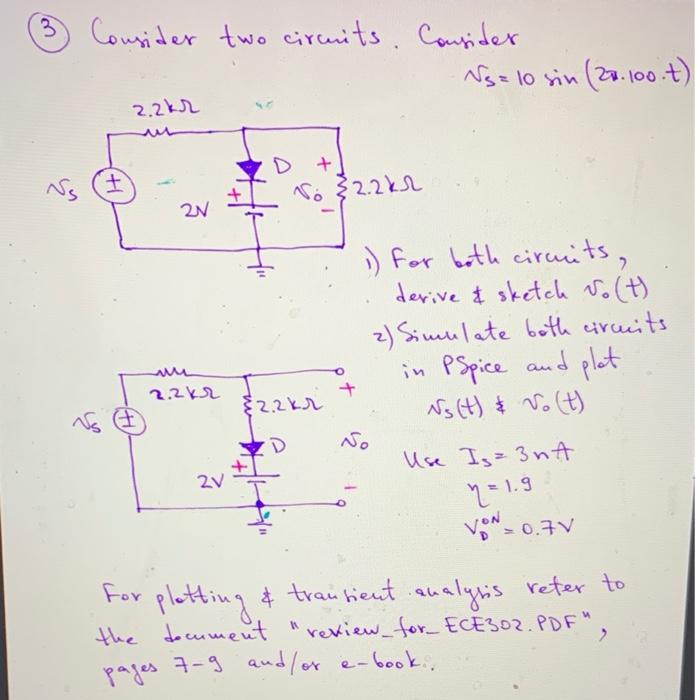 ③ Consider two circuits. Consider
Vs = 10 sin (2π.100.t)
2.2kΩ
D
+
Vs
±
+
2V
Vo
2.2kΩ
-
1) For both circuits,
derive & sketch Vo(t)
2) Simulate both circuits
in PSpice and plot
Vs(t) & Vo(t)
2.2kΩ
+
2.2kΩ
Vs
±
D
Vo
+
2V
-
Use Is = 3nA
η = 1.9
V_D^ON = 0.7V
For plotting & transient analysis refer to
the document "review_for_ECE302.PDF",
pages 7-9 and/or e-book.